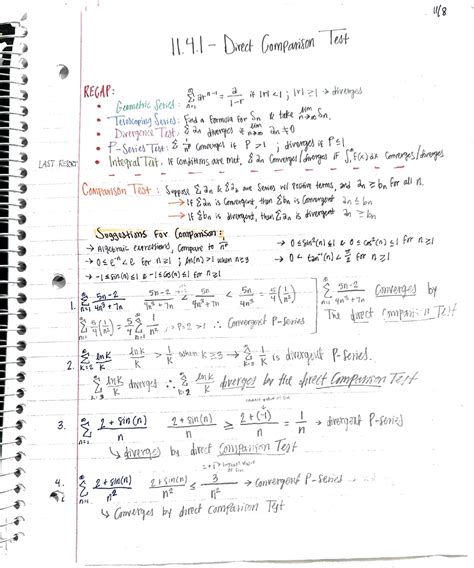 11/8
11.4.1 - Direct Comparison Test
RECAP:
• Geometric Series: ∞Σn=1 ar^(n-1) = a/(1-r) if |r| < 1 ; |r| ≥ 1 → diverges
• Telescoping Series: Find a Formula for Sn & take lim n→∞ Sn
• Divergence Test: Σ an diverges if lim n→∞ an ≠ 0
• P-Series Test: Σ 1/n^p converges if P > 1 ; diverges if P ≤ 1
LAST RESORT • Integral Test: if conditions are met, Σ an Converges/diverges if ∫ f(x)dx Converges/diverges
Comparison Test: Suppose Σ an & Σ bn are Series w/ positive terms, and an ≥ bn for all n.
→ If Σ an is Convergent, then Σ bn is Convergent
→ If Σ bn is divergent, then Σ an is divergent
Suggestions For Comparison:
→ Algebraic expressions, Compare to
→ 0 ≤ e^-n ≤ for n ≥ 1 ; ln(n) > 1 when n ≥ 3
→ -1 ≤ sin(n) ≤ 1 & -1 ≤ cos(n) ≤ 1 for n ≥ 1
→ 0 ≤ sin²(n) ≤ 1 & 0 ≤ cos²(n) ≤ 1 for n ≥ 1
→ 0 < tan⁻¹(n) < π/2 for n ≥ 1
1. ∞Σn=1 (5n-2)/(4n³+7n) (5n-2)/(4n³+7n) < 5n/(4n³+7n) < 5n/4n³ = 5/4(1/n²)
∞Σn=1 5/4(1/n²) = 5/4 ∞Σn=1 1/n² , P=2 > 1 ∴ Convergent P-Series
∞Σn=1 (5n-2)/(4n³+7n) Converges by
The direct comparison Test
2. ∞Σk=2 lnk/k lnk/k > 1/k when k ≥ 3 → ∞Σk=3 1/k is divergent P-Series.
∞Σk=3 lnk/k diverges ∴ ∞Σk=2 lnk/k diverges by the direct Comparison Test
3. ∞Σn=1 (2+sin(n))/n (2+sin(n))/n ≥ (2+(-1))/n = 1/n → divergent P-Series
↳ diverges by direct Comparison Test
4. ∞Σn=1 (2+sin(n))/n² (2+sin(n))/n² ≤ 3/n² → Convergent P-Series
↳ Converges by direct Comparison Test